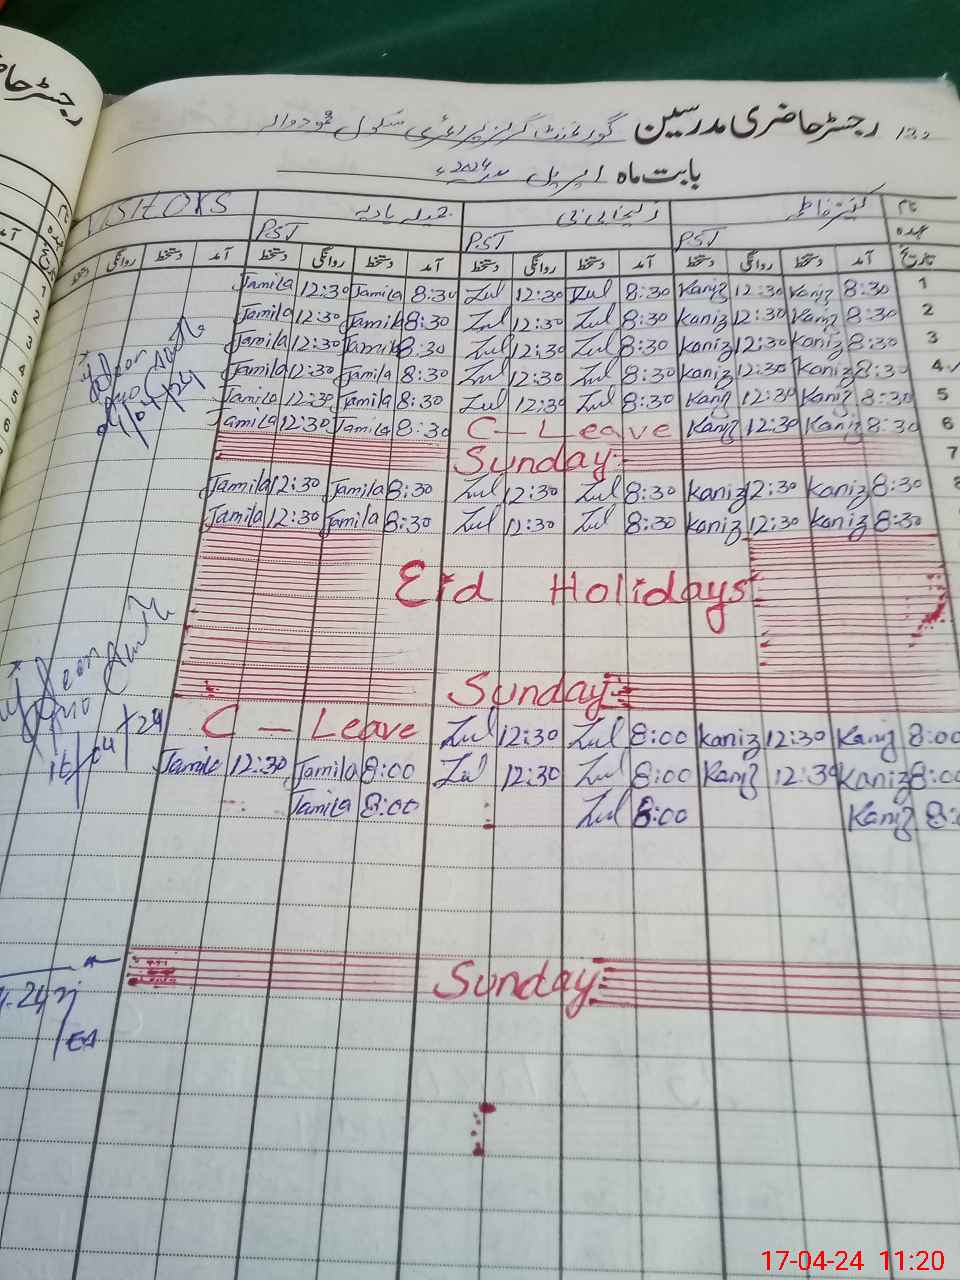 رجسٹر حاضری مدرسین گورنمنٹ گرلز پرائمری سکول
بابت ماہ اپریل 2024ء
نام کنیز فاطمہ زلیخا بی بی VISITORS
عہدہ PST PST PST
تاریخ آمد دستخط روانگی دستخط آمد دستخط روانگی دستخط آمد دستخط روانگی دستخط آمد دستخط روانگی دستخط
Jamila 12:30 Jamila 8:30 Zul 12:30 Zul 8:30 Kaniz 12:30 Kaniz 8:30 1
Jamila 12:30 Jamila 8:30 Zul 12:30 Zul 8:30 Kaniz 12:30 Kaniz 8:30 2
Jamila 12:30 Jamila 8:30 Zul 12:30 Zul 8:30 Kaniz 12:30 Kaniz 8:30 3
Jamila 12:30 Jamila 8:30 Zul 12:30 Zul 8:30 Kaniz 12:30 Kaniz 8:30 4
Jamila 12:30 Jamila 8:30 Zul 12:30 Zul 8:30 Kaniz 12:30 Kaniz 8:30 5
Jamila 12:30 Jamila 8:30 C - Leave Kaniz 12:30 Kaniz 8:30 6
Sunday 7
Jamila 12:30 Jamila 8:30 Zul 12:30 Zul 8:30 Kaniz 12:30 Kaniz 8:30 8
Jamila 12:30 Jamila 8:30 Zul 12:30 Zul 8:30 Kaniz 12:30 Kaniz 8:30
Eid Holidays
Sunday
C - Leave Zul 12:30 Zul 8:00 Kaniz 12:30 Kaniz 8:00
Jamila 12:30 Jamila 8:00 Zul 12:30 Zul 8:00 Kaniz 12:30 Kaniz 8:00
Jamila 8:00 Zul 8:00 Kaniz 8:
Sunday
17-04-24 11:20